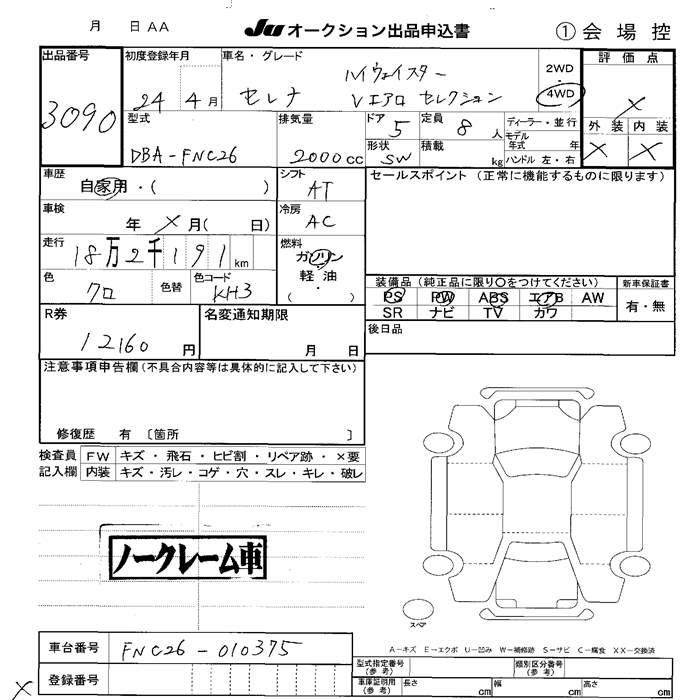 月 日 AA
Ju オークション出品申込書
① 会場控
出品番号
3090
初度登録年月
24 4月
車名・グレード
セレナ ハイウェイスター
Vエアロ セレクション
2WD
・
4WD
評価点
×
外装 内装
× ×
型式
DBA-FNC26
排気量
2000cc
ドア
5
定員
8人
形状
SW
積載
kg
ディーラー・並行
モデル年式 年
ハンドル 左・右
車歴
自家用・( )
シフト
AT
車検
年 × 月( 日)
冷房
AC
走行
18万2千191km
燃料
ガソリン
軽油
・
( )
色
クロ
色替
色コード
KH3
R券
12160円
名変通知期限
月 日
セールスポイント (正常に機能するものに限ります)
装備品 (純正品に限り○をつけてください)
PS PW ABS エアB AW
SR ナビ TV カワ
新車保証書
有・無
後日品
注意事項申告欄 (不具合内容等は具体的に記入して下さい)
修復歴 有 〔箇所 〕
検査員記入欄
FW キズ・飛石・ヒビ割・リペア跡・×要
内装 キズ・汚レ・コゲ・穴・スレ・キレ・破レ
ノークレーム車
スペア
A-キズ E-エクボ U-凹み W-補修跡 S-サビ C-腐食 XX-交換済
車台番号
FNC26-010375
登録番号
型式指定番号(参考)
類別区分番号(参考)
車庫証明用(参考)
長さ cm
幅 cm
高さ cm
×